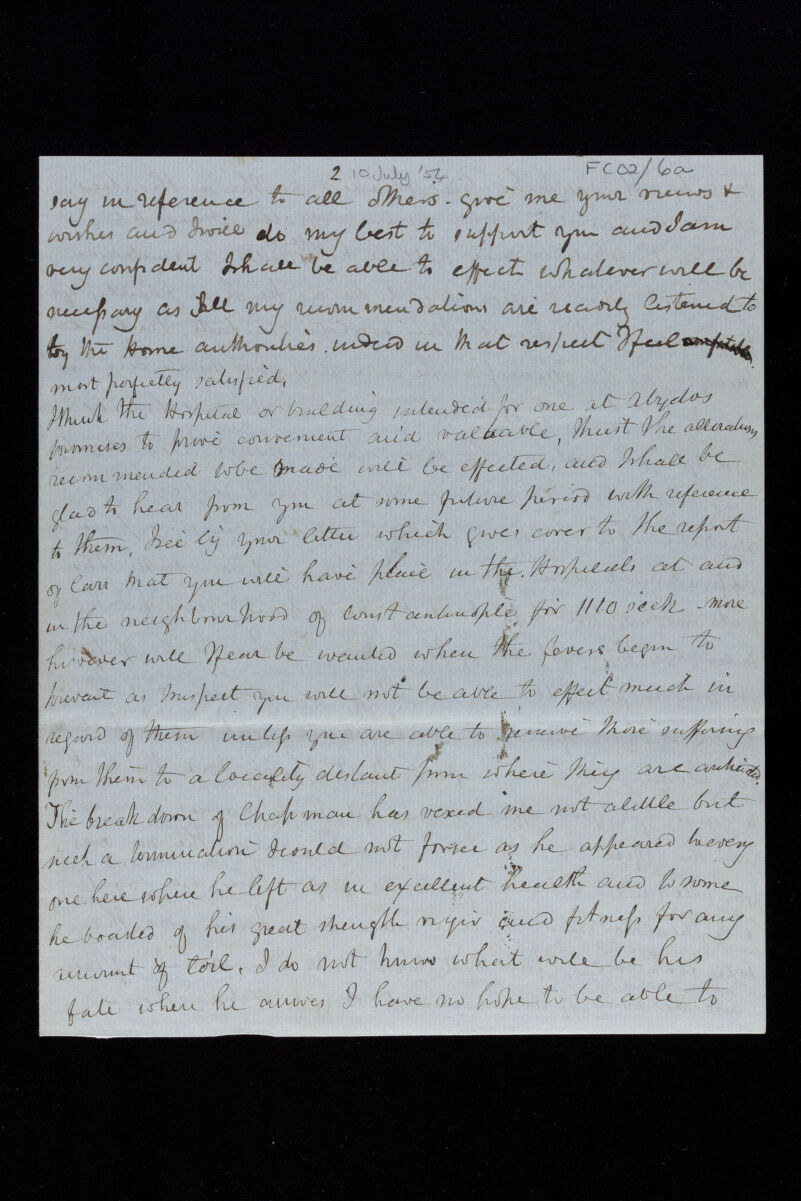 2 10 July '54 FCO2/6a
say in reference to all others - give me your views &
wishes and I will do my best to support you and I am
very confident I shall be able to effect whatever will be
necessary as all my recommendations are readily listened to
by the Home authorities. indeed in that respect I feel
most perfectly satisfied.
I think the Hospital or building intended for one at Abydos
promises to prove convenient and valuable, I trust the alterations
recommended to be made will be effected, and I shall be
glad to hear from you at some future period with reference
to them, I see by your letter which gives cover to the report
of Carr that you will have place in the Hospitals at and
in the neighbourhood of Constantinople for 1110 sick - more
however will I fear be wanted when the fevers begin to
prevent as I suspect you will not be able to effect much in
regard of them unless you are able to remove those suffering
from them to a locality distant from where they are
The break down of Chapman has vexed me not a little but
such a termination I could not forsee as he appeared to every
one here where he left as in excellent health and to some
he boasted of his great strength vigir and fitness for any
amount of toil. I do not know what will be his
fate where he arrives I have no hope to be able to